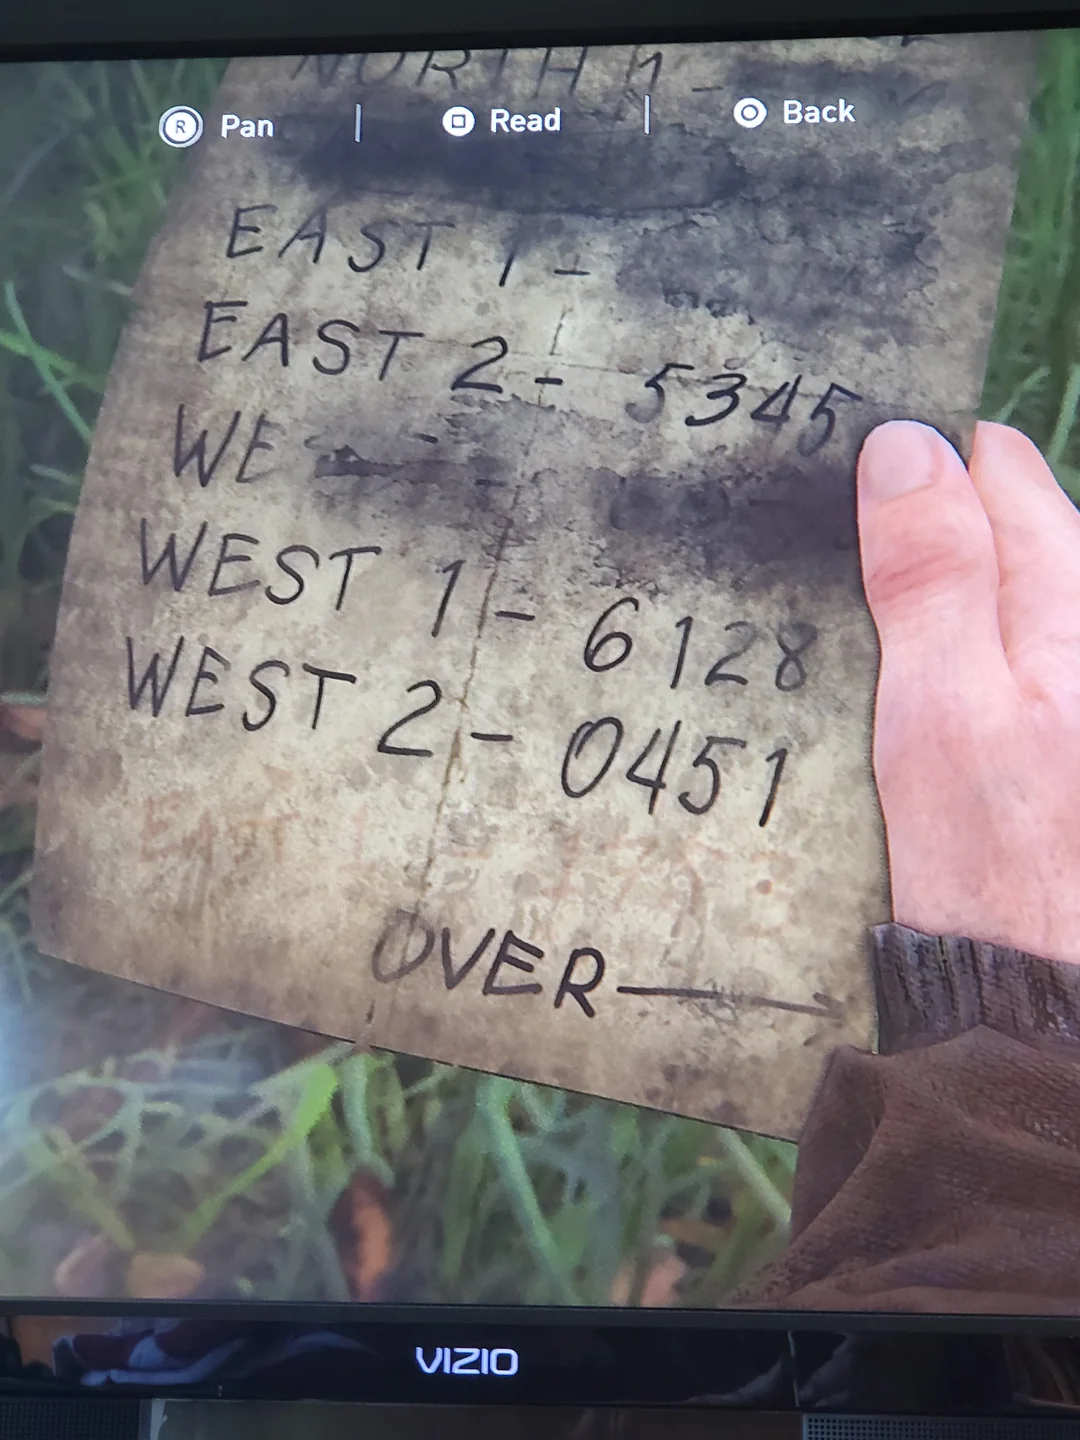 NORTH
Ⓡ Pan | Read | Back
EAST 1 -
EAST 2 - 5345
WE
WEST 1 - 6128
WEST 2 - 0451
EAST 1
OVER
VIZIO